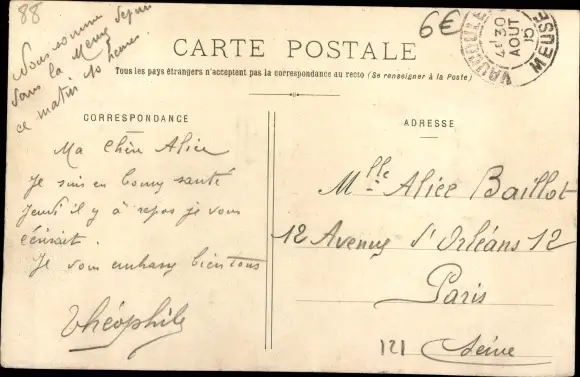 88
Nous sommes
dans la Meuse depuis
ce matin 10 heures.
6€
CARTE POSTALE
Tous les pays étrangers n'acceptent pas la correspondance au recto (Se renseigner à la Poste)
VAUCOULEURS
4E 30
AOUT
15
MEUSE
CORRESPONDANCE
Ma Chèr Alice
Je suis en bonny santé
Jeudi il y à repos je vous
écrirait.
Je vous embrassy bien tous
Théophile
ADRESSE
Mlle Alice Baillot
12 Avenuy d'Orléans 12
Paris
121 Seine